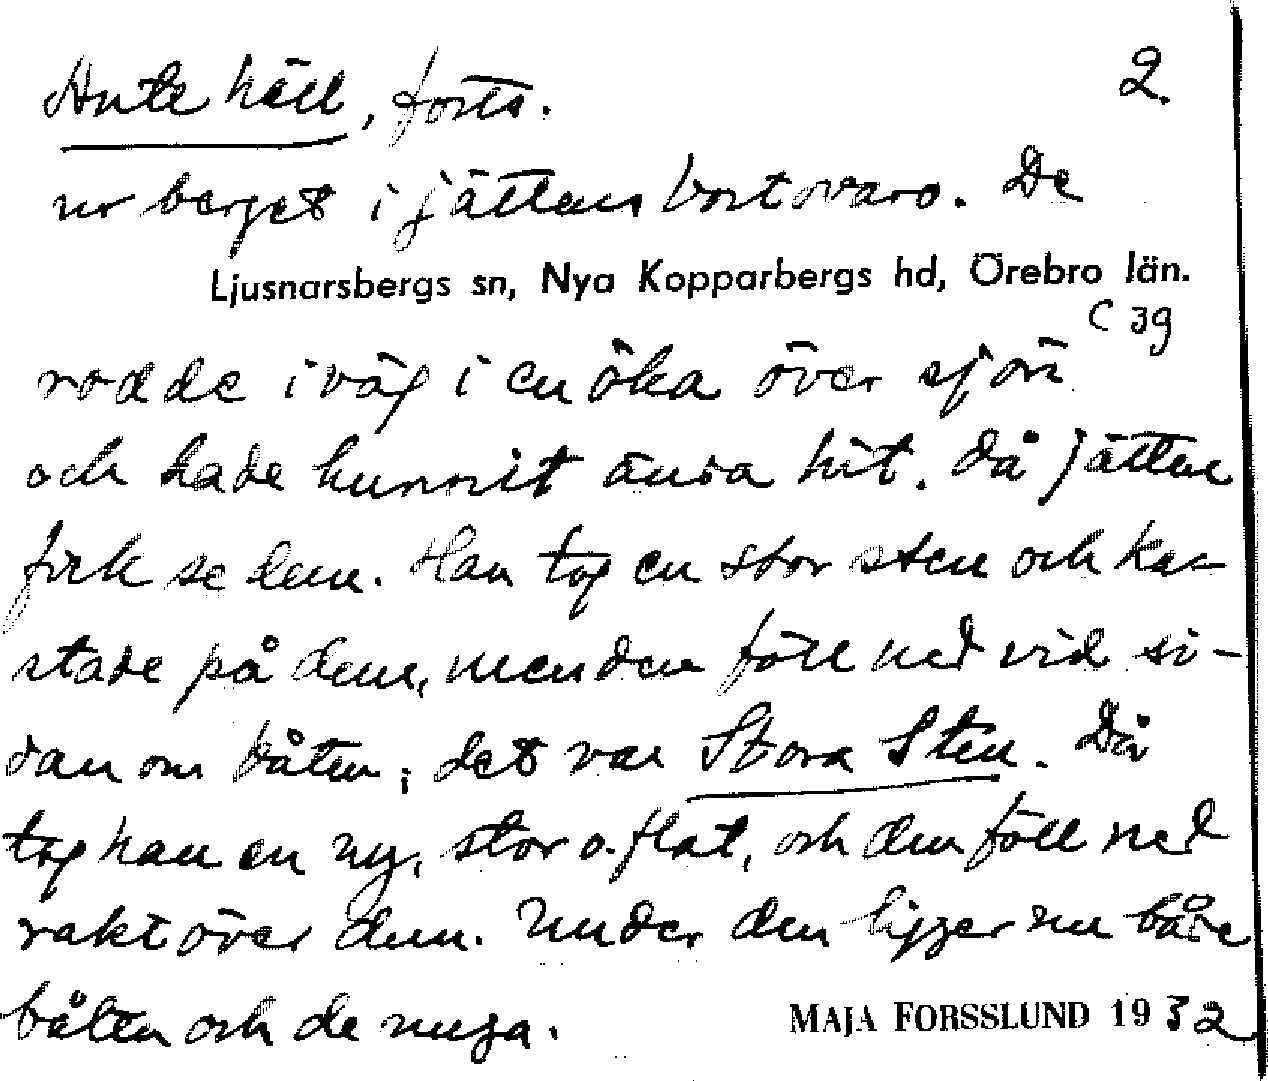 Ante häll, forts. 2.
ur berget i jättens bortovaro. De
Ljusnarsbergs sn, Nya Kopparbergs hd, Örebro län.
C 39
rodde iväg i en öka över sjön
och hade hunnit ända hit. då jätten
fick se dem. Han tog en stor sten och ka-
stade på dem, men den föll ned vid si-
dan om båten; det var Stora Sten. Då
tog han en ny, stor o. flat, och den föll ned
rakt över dem. Under den ligger nu både
båten och de unga.
MAJA FORSSLUND 1932